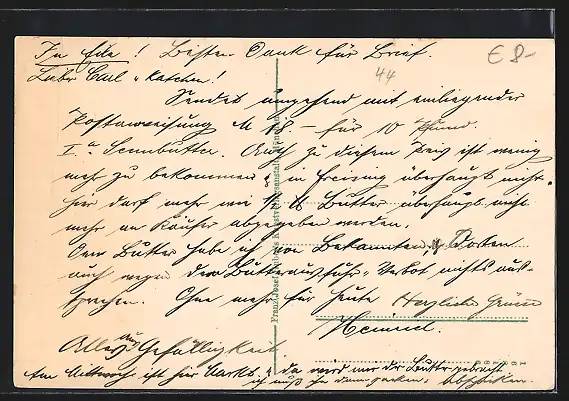 In Eile! Besten Dank für Brief. € 8-
Lieber Carl u Katchen! 44
Sendet umgehend mit einliegender
Postanweisung M 18.- für 10 Pfund.
Ia Sennbutter. Auch zu diesem Preis ist wenig
mehr zu bekommen u in Freising überhaupt nicht.
hier darf mehr wie ½ Butter überhaupt nicht
mehr an Käufer abgegeben werden.
Den Butter habe ich von Bekannten,
auch wegen dem Butterausfuhr-Verbot nichts aus-
sprechen. Ohne mehr für heute Herzliche Grüsse
Heinrich.
Alles aus Gefälligkeit.
Am Mittwoch ist hier Markt. u da wird nur der Butter gebracht
ich muß ihn dann packen, abschicken.